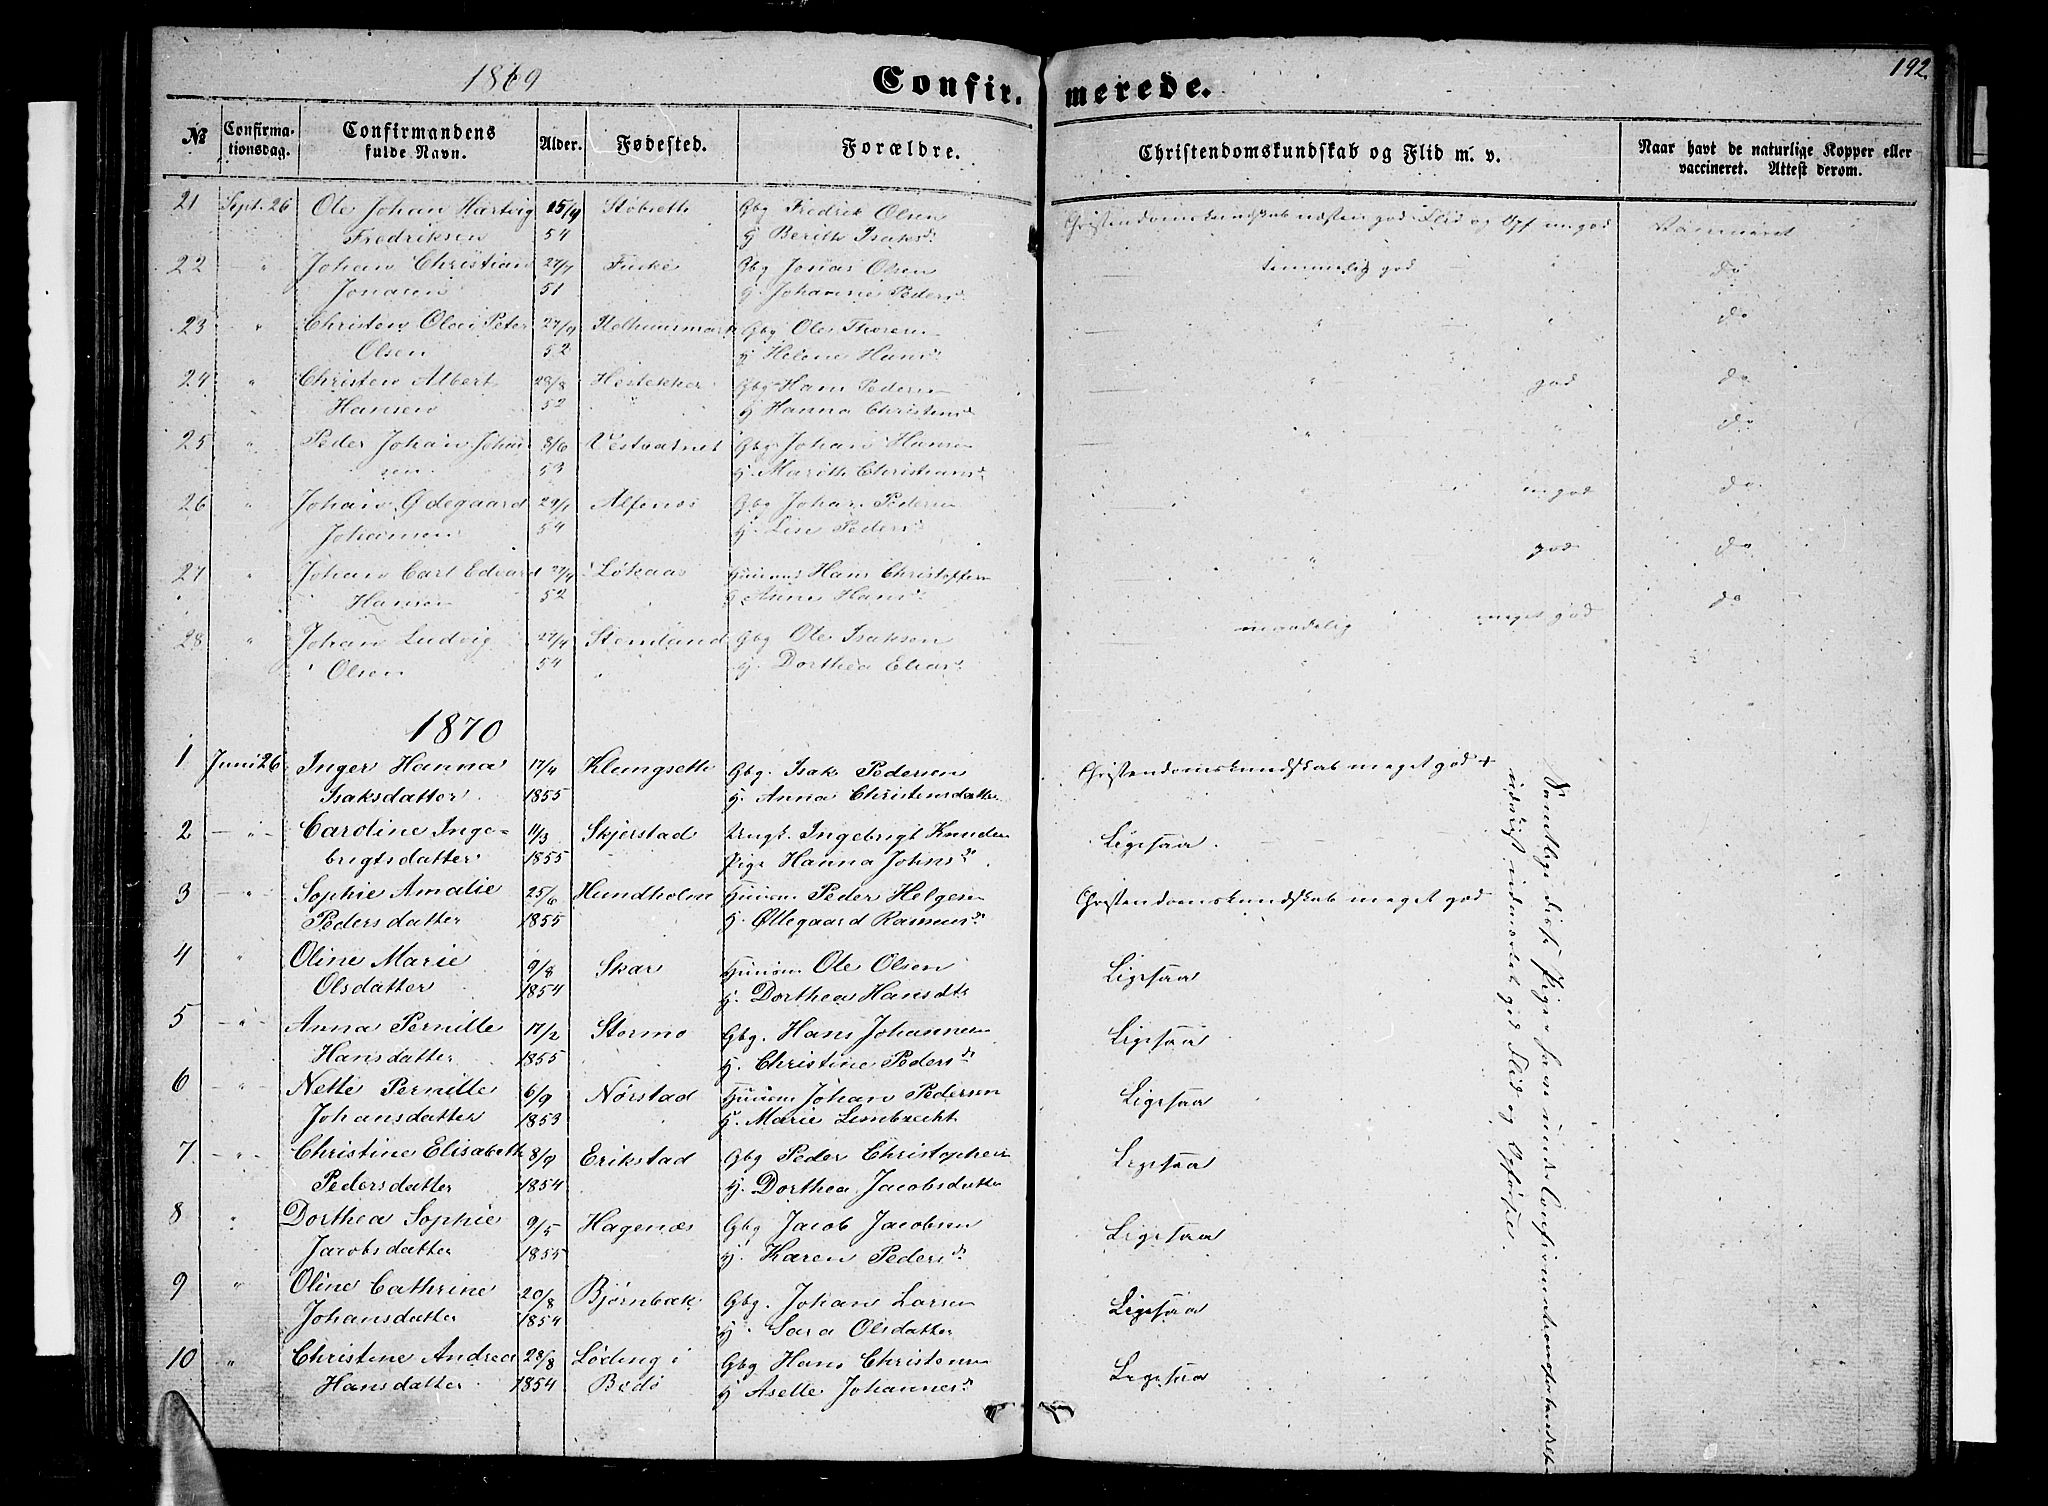 1869 Confirmerede. 192.
№ Confirmationsdag. Confirmandens fulde Navn. Alder. Fødested. Forældre. Christendomskundskab og Flid m. v. Naar havt de naturlige Kopper eller vaccineret. Attest derom.
21 Sept. 26 Ole Johan Hartvig 15/4 Gbg Fredrik Olsen Christendomskundskab næsten god Flid og Opf. m. god
Fredriksen 54 H Berith Isaksd.
22 " Johan Christian 27/7 Gbg Jonas Olsen temmelig god " do
Jonasen 51 H. Johanna Pedersd.
23 " Christen Olai Peter 27/9 Gbg Ole " " do
Olsen 52 H Helene Hansd.
24 " Christen Albert 28/8 Gbg Hans Pedersen " god do
" Hansen 52 " H Hanna Christensd.
25 " Peder Johan Johan 8/6 Vestvatnet Gbg Johan Hansen " " do
sen 53 H. Marith Christiansd.
26 " Johan Ødegaard Alfenes Gbg Johan Pedersen " m. god do
Johansen 54 H. Lin Pedersd.
27 " Johan Carl Edvard 27/4 Løkaas Huusm. Hans Christoffersen " god do
Hansen 52 Anne Hansd.
28 " Johan Ludvig 27/4 Stemland Gbg Ole Isaksen maadelig meget god do
Olsen 54 " H. Dorthea Eliasd.
1870
1 Juni 26 Inger Hanna 17/4 Klungsette Gbg. Isak Pedersen Christendomskundskab meget god +
Isaksdatter 1855 H. Anna Christensdatter
2 – " – Caroline Inge= 11/3 Skjerstad Ungk. Ingebrigt Knudsen Ligesaa.
brigtsdatter 1855 Pige Hanna Johnsd.
3 – " Sophie Amalie 25/6 Hundholm Huusm Peder Helgesen Christendomskundskab meget god
Pedersdatter 1855 H. Øllegaard Rasmusd.
4 " Oline Marie 9/8 Skar Huusm. Ole Olsen Ligesaa
Olsdatter 1854 H. Dorthea Hansdt
5 – " – Anna Pernille 17/2 Stormo Gbg. Hans Johannesen Ligesaa
Hansdatter 1855 H. Christine Pedersd.
6 – " – Nette Pernille 6/9 Nørstad Huusm Johan Pedersen Ligesaa
Johansdatter 1853 H. Marie Limbrecht
7 – " – Christine Elisabeth 8/9 Erikstad Gbg Peder Christophers Ligesaa
Pedersdatter 1854 H. Dorthea Jacobsdatter
8 " Dorthea Sophie 9/5 Hagenæs Gbg Jacob Jacobsen Ligesaa
Jacobsdatter 1855 H. Karen Pedersd.
9 " Oline Cathrine 20/8 Bjørnbæk Gbg. Johan Larsen Ligesaa
Johansdatter 1854 H. Sara Olsdatter
10 " Christine Andrea 28/8 Løding i Gbg Hans Christensen Ligesaa
Hansdatter 1854 Bodø H Aselle Johannesd.
Samtlige disse Piger have under Confirmationsforberedel-
udvist god Flid og Opførsel.